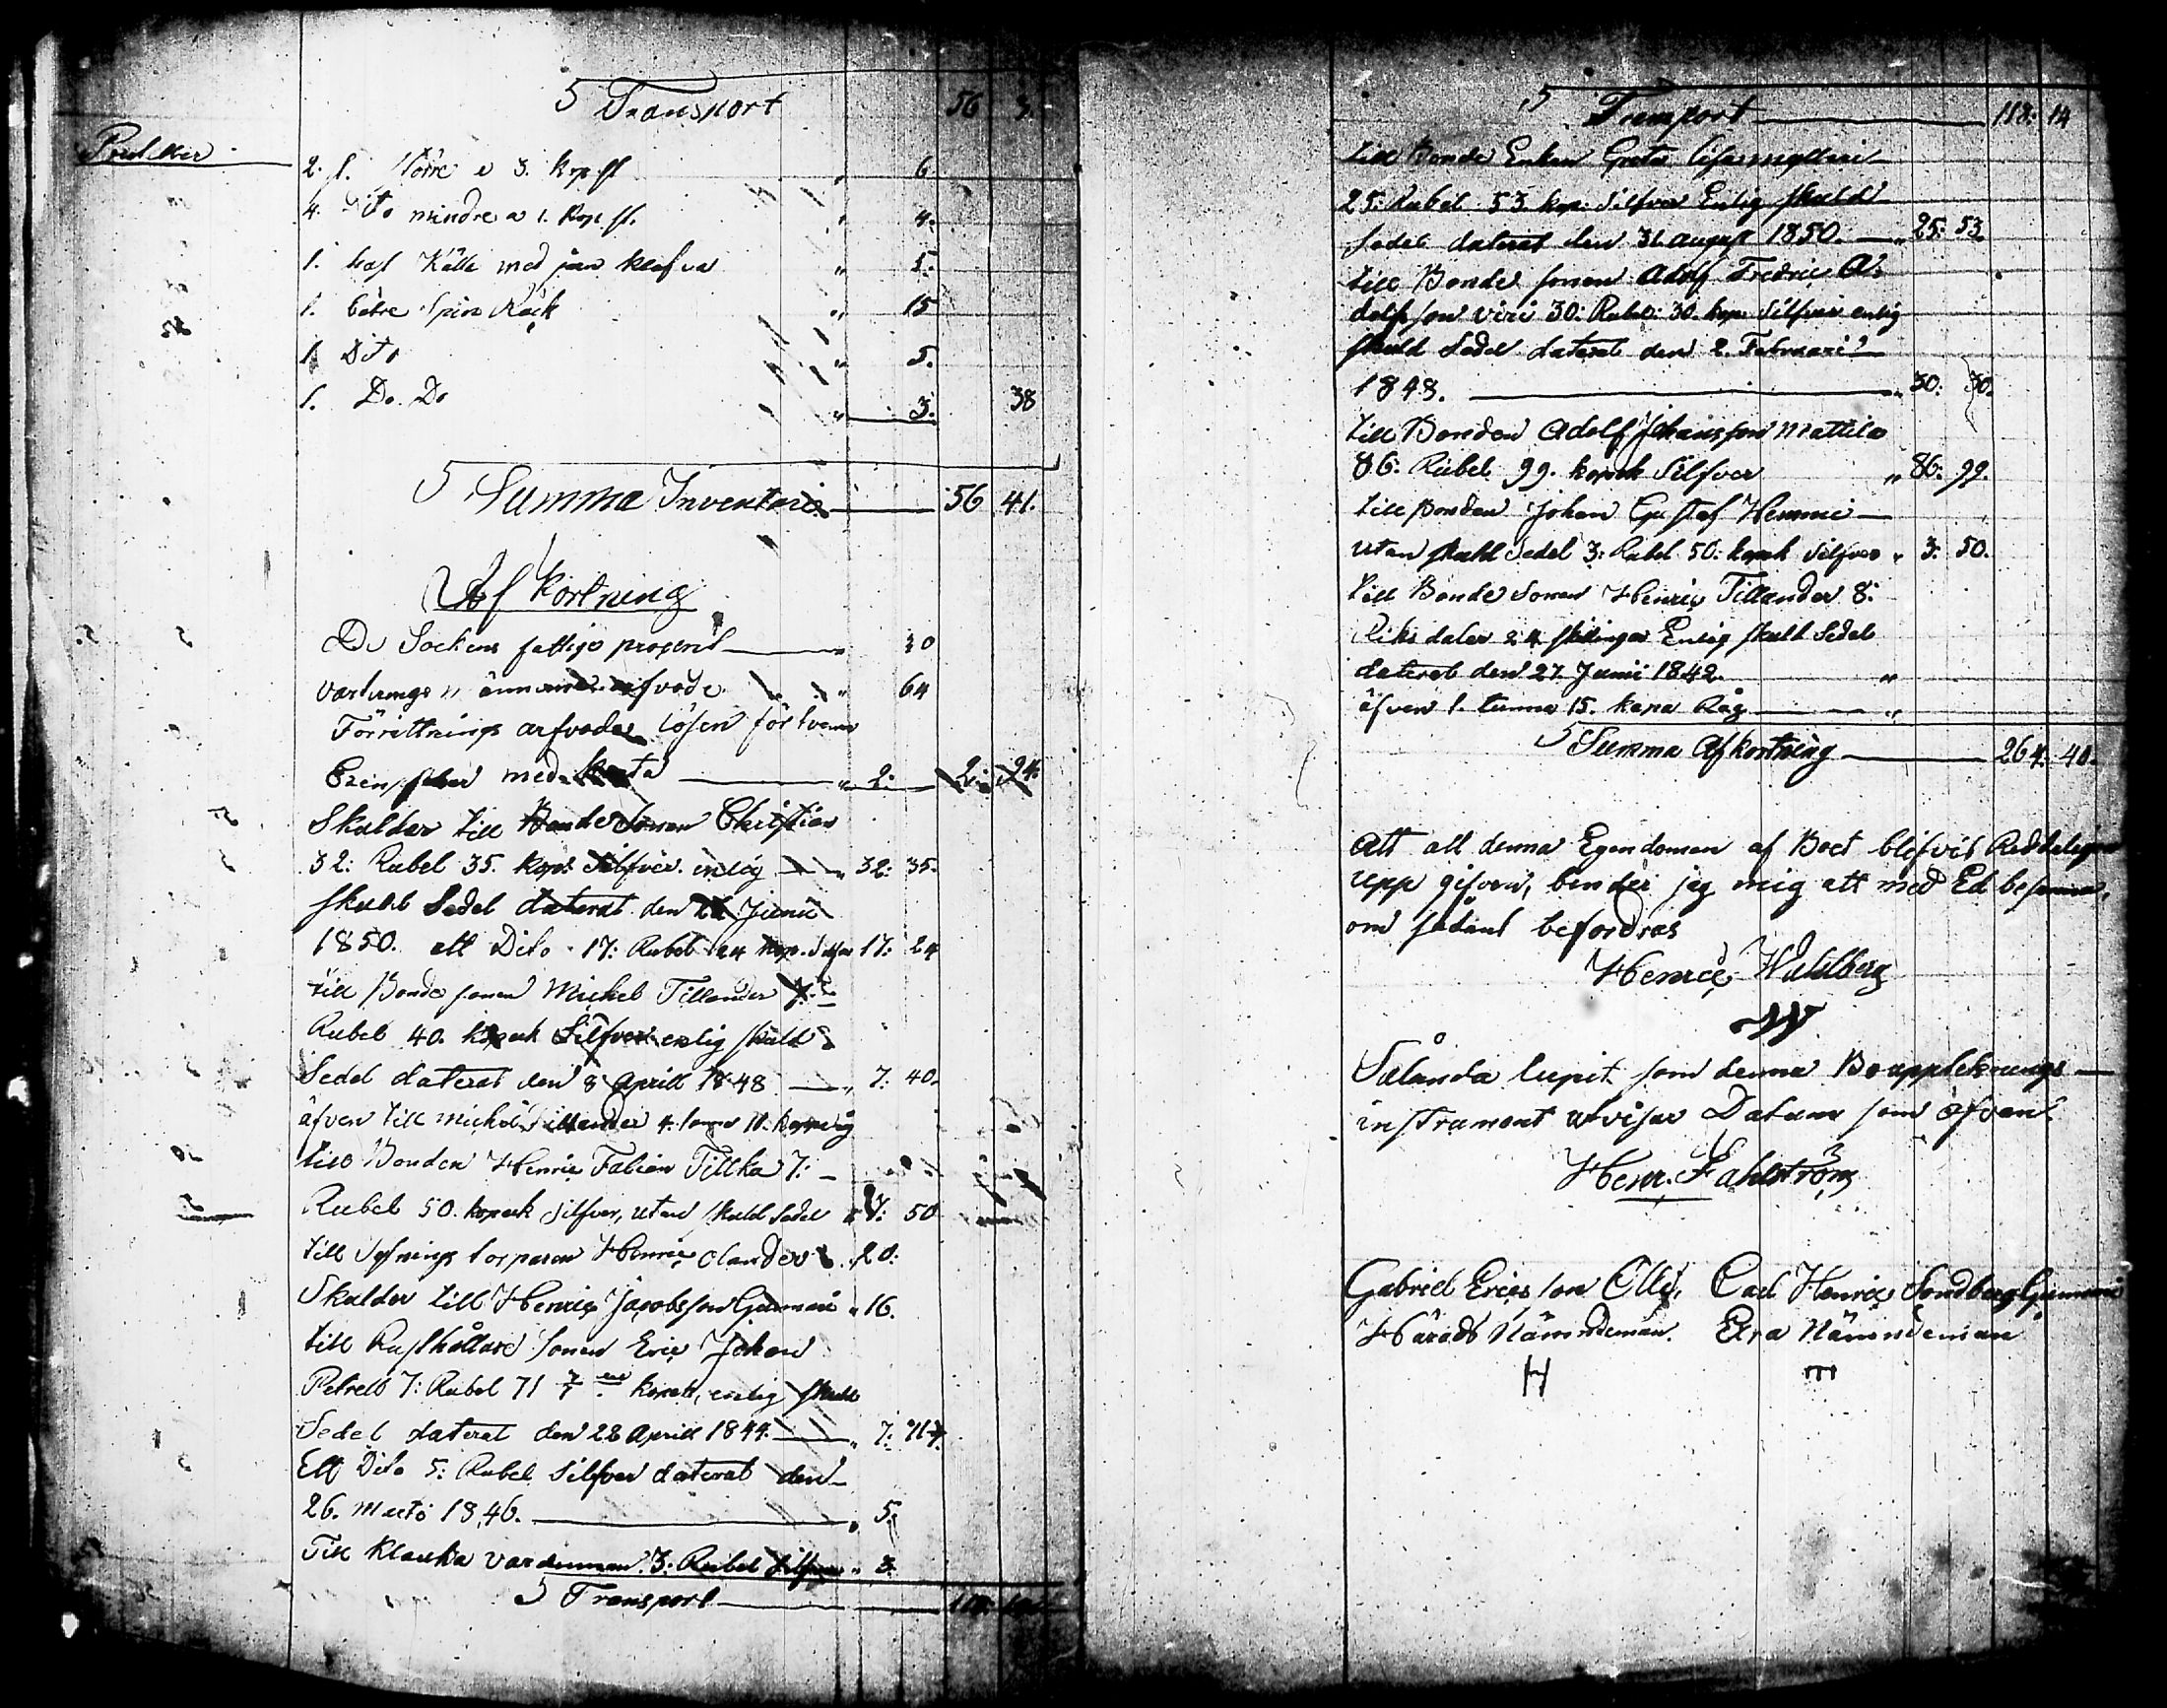 Transport 56 3.
2. st. större a 3. kop. st " 6
4. Dito mindre a 1. kop. st. " 4.
1. " 5.
1. bätre Spin Råck " 15
1. Dito " 5.
1. Do. Do " 3. 38
Summa Inventarie 56 41.
Af kortning
De Sockens fattige procent " 30
värderings männernes arfvode " 64
Förrättnings arfvode lösen för tvenne
med karta " 2: 2: 94.
Skulder till Bonde Sonen Christian
32: Rubel 35. kop: Silfver enlig " 32: 35.
skuld Sedel daterat den Junii
1850. ett Dito 17: Rubel 24 kop. Silfver 17: 24
till Bonde sonen Michel Tillander 7:
Rubel 40. kopek Silfver enlig skuld
Sedel daterat den 8 Aprill 1848 " 7: 40.
äfven till Michel Tillander 4. tunnor 11. kappar råg
till Bonden Henric Fabian Tillka 7:
Rubel 50. kopek silfver, utan skuld sedel " 7: 50
till Sytnings torparen Henric Olander 20:
Skulder till Henric Jacobsson " 16.
till Rusthållare sonen Eric Johan
Petrell 7: Rubel 71 kopek, enlig skuld
Sedel daterat den 28 Aprill 1844. " 7: 71
Ett Dito 5: Rubel Silfver daterat den
26. 1846. " 5.
Till Klauka 3: Rubel Silfver " 3.
Transport 118: 14
Transport 118: 14
till Bonde Enkan Greta Lisa
25: Rubel 53 kop: Silfver Enlig Skuld
sedel daterat den 31 august 1850. " 25: 53.
till Bonde sonen Adolf Fredric A:
dolfsson 30: Rubel: 30. kop: Silfver enlig
skuld Sedel daterat den 2. Februarii
1848. " 30: 30.
till Bonden Adolf Johansson Mattila
86: Rubel 99. kopek Silfver " 86: 99.
till Bonden Johan Gustaf Hemmi
utan skuld Sedel 3: Rubel 50: kopek silfver " 3: 50.
till Bonde Sonen Henric Tillander 8:
Riks daler 24 skillingar Enlig skuld Sedel
daterat den 27 Junii 1842. "
äfven 1. tunna 15. kapa Råg "
Summa Afkortning 264: 40.
Att all denna Egendomen af Boet blifvit Redeligen
upp gifven, binder jag mig att med Ed
om sådant befordras
Henric Wahlberg
W
Sålunda lupit som denna Boupptekninngs
instrument utvisar Datum som ofvan.
Henr. Fahlström
Gabriel Ericsson Olli, Carl Henric Sondberg
Härads Nämndeman. Exra Nämndeman